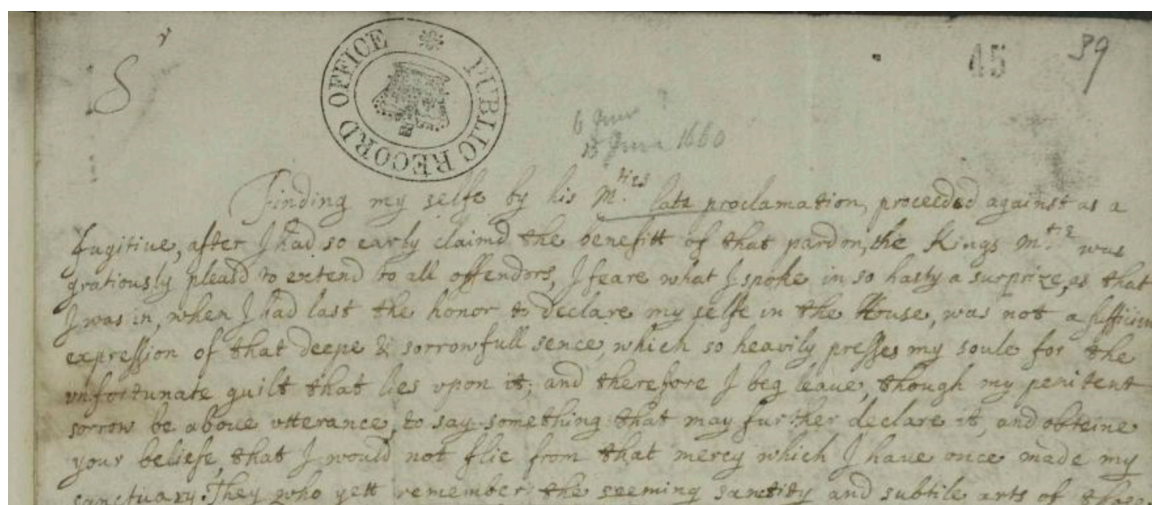 Sr
PUBLIC RECORD OFFICE
45
39
6 June ?
15 June 1660
Finding my selfe by his M.ties late proclamation, proceeded against as a
fugitive, after I had so early claimd the benefitt of that pardon, the Kings M.tie was
gratiously pleasd to extend to all offendors, I feare what I spoke in so hasty a surprize, as that
I was in, when I had last the honor to declare my selfe in the House, was not a sufficient
expression of that deepe & sorrowfull sence, which so heavily presses my soule for the
unfortunate guilt that lies vpon it; and therefore I beg leave, though my penitent
sorrow be above vtterance, to say something that may further declare it, and obteine
your beliefe, that I would not flie from that mercy which I have once made my
sanctuary. They who yett remember the seeming sanctity and subtile arts of those